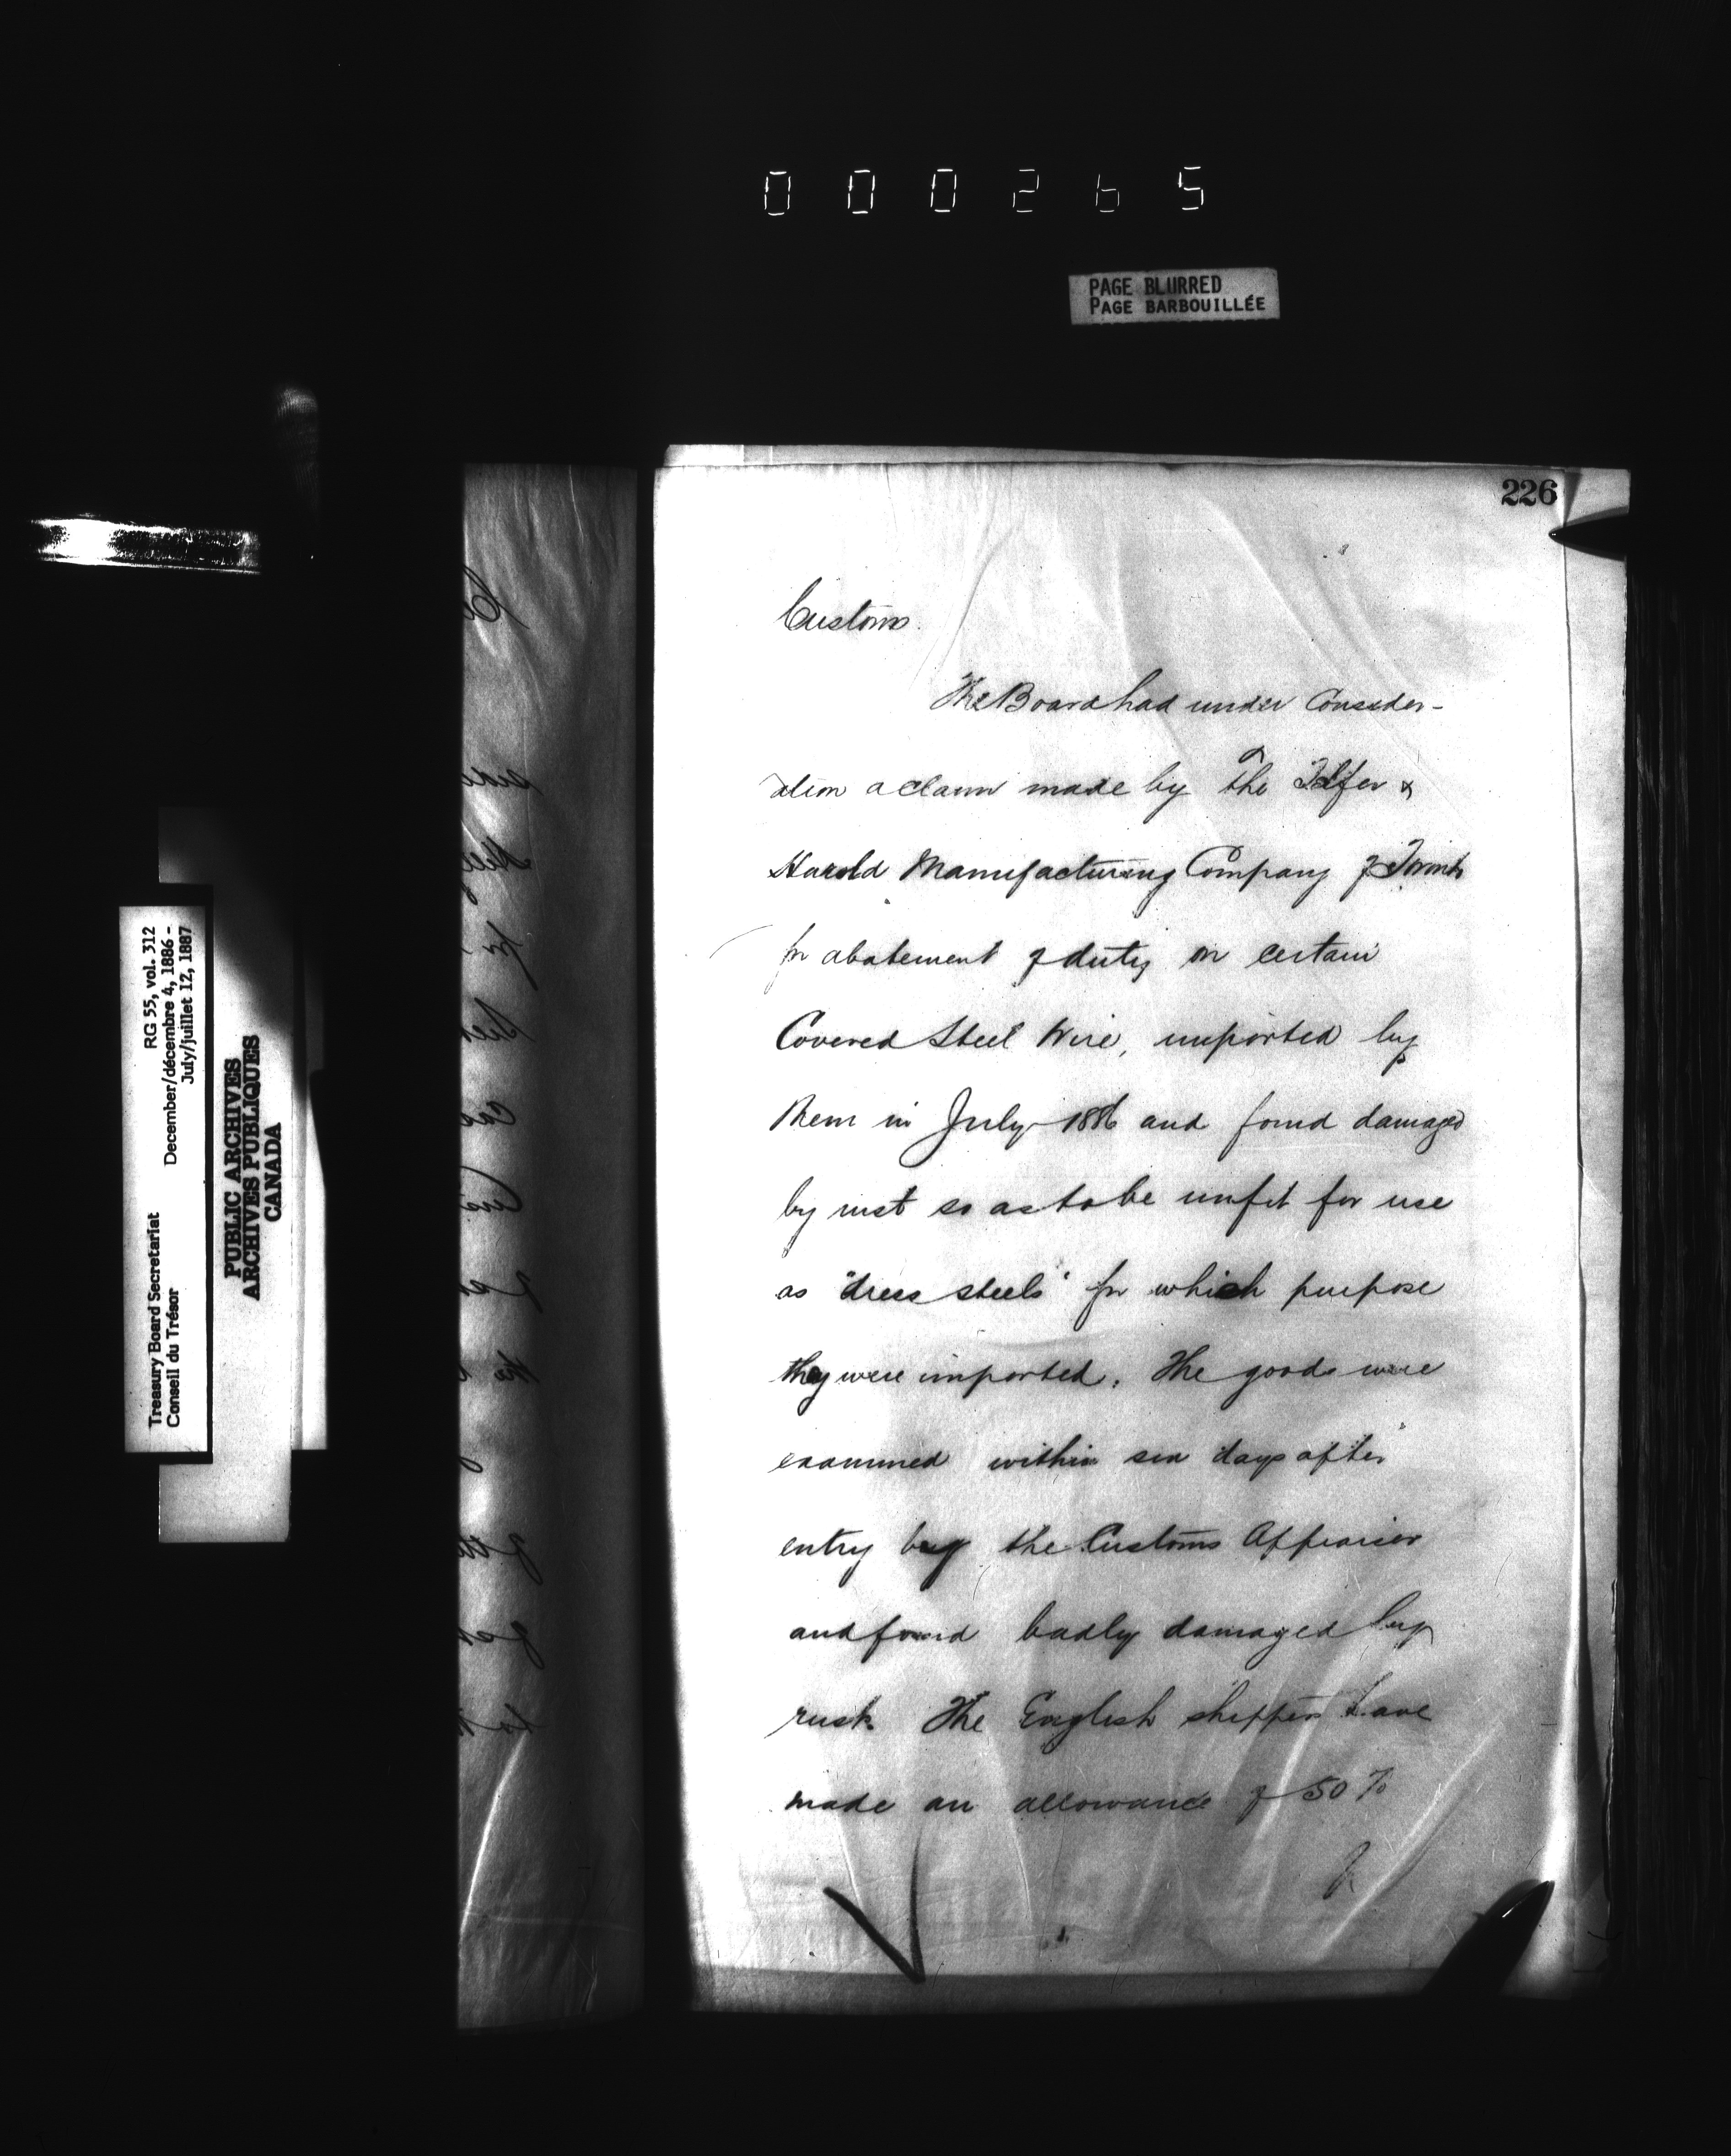 000265
PAGE BLURRED
PAGE BARBOUILLÉE
226
Customs.
The Board had under Consider-
ation a claim made by the Telfer &
Harold Manufacturing Company of Toronto
for abatement of duty on certain
Covered Steel Wire, imported by
them in July 1886 and found damaged
by rust so as to be unfit for use
as "dress steels" for which purpose
they were imported. The goods were
examined within six days after
entry by the Customs Appraiser
and found badly damaged by
rust. The English shippers have
made an allowance of 50 %
Treasury Board Secretariat RG 55, vol. 312
Conseil du Trésor December/décembre 4, 1886 -
July/juillet 12, 1887
PUBLIC ARCHIVES
ARCHIVES PUBLIQUES
CANADA